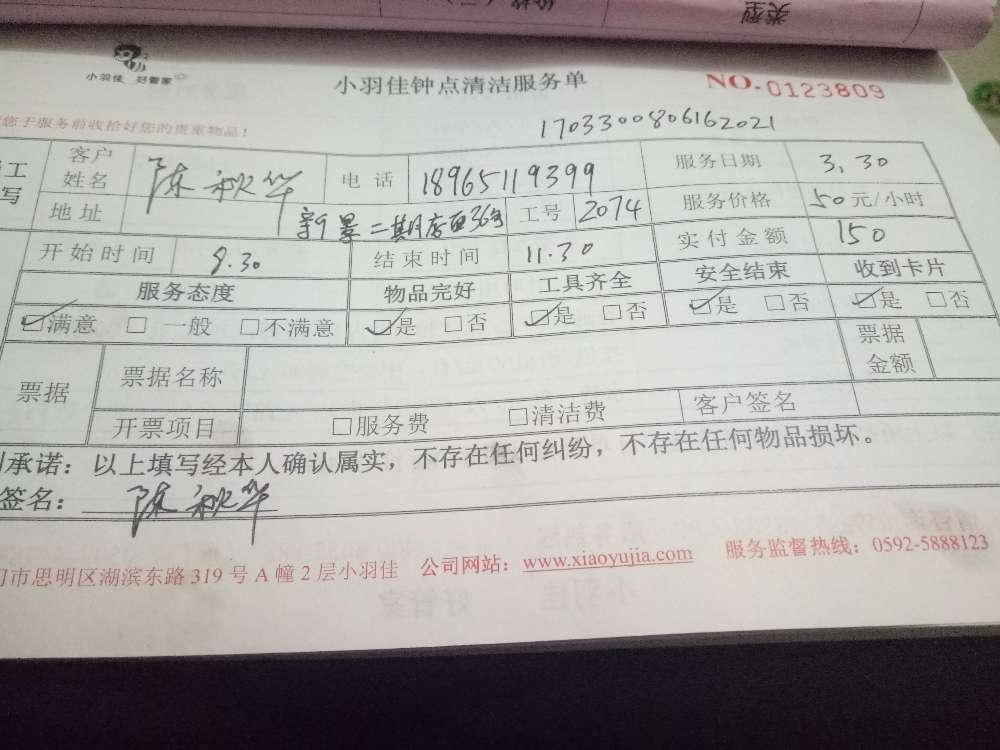 类型
小羽佳 好管家
小羽佳钟点清洁服务单
NO.0123809
您于服务前收拾好您的贵重物品!
1703300806162021
工
写
客户姓名 陈秋华 电话 18965119399 服务日期 3.30
地址 新景二期店面36号 工号 2074 服务价格 50元/小时
开始时间 8.30 结束时间 11.30 实付金额 150
服务态度 物品完好 工具齐全 安全结束 收到卡片
☑满意 □一般 □不满意 ☑是 □否 ☑是 □否 ☑是 □否 ☑是 □否
票据 票据名称 票据金额
开票项目 □服务费 □清洁费 客户签名
承诺:以上填写经本人确认属实,不存在任何纠纷,不存在任何物品损坏。
签名: 陈秋华
门市思明区湖滨东路319号A幢2层小羽佳 公司网站:www.xiaoyujia.com 服务监督热线:0592-5888123